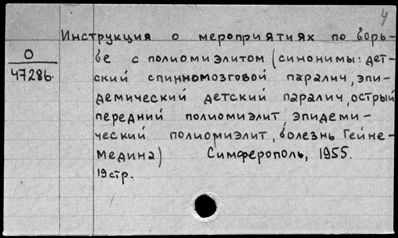 4
Инструкция о мероприятиях по борь-
бе с полиомиэлитом (синонимы: дет-
ский спинномозговой паралич, эпи-
демический детский паралич, острый
передний полиомиелит, эпидеми-
ческий полиомиелит, болезнь Гейне-
Медина) Симферополь, 1955.
19 стр.
О
47286.